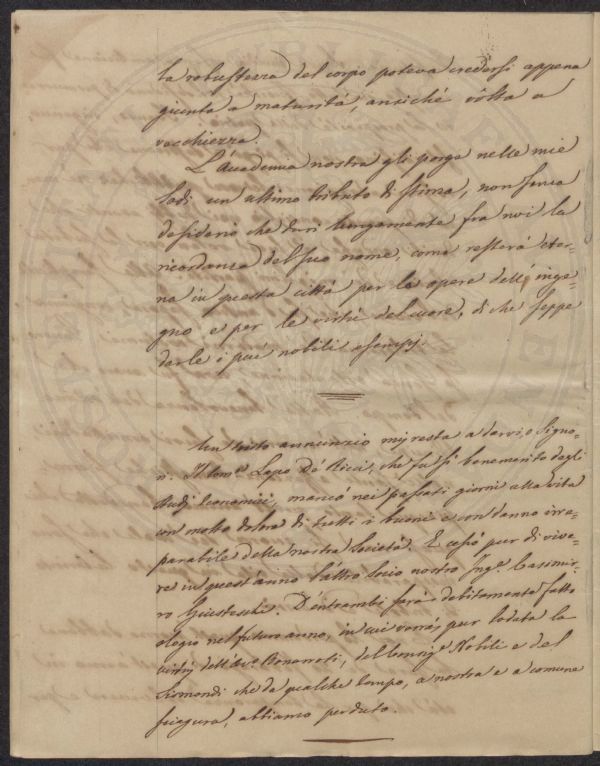 la robustezza del corpo poteva credersi appena
giunta a maturità, anziché vòlta a
vecchiezza.
L'Accademia nostra gli porge nelle mie
lodi un ultimo tributo di stima, non senza
desiderio che duri lungamente fra noi la
ricordanza del suo nome, come resterà eter-
na in questa città per le opere dell'inge-
gno e per le virtù del cuore, di che seppe
darle i più nobili esempj.
Un tristo annunzio mi resta a darvi, o Signo-
ri. Il Lapo De' Ricci, che fu sì benemerito degli
studj economici, mancò nei passati giorni alla vita
con molto dolore di tutti i buoni e con danno irre-
parabile della nostra Società. E cessò pur di vive-
re in quest'anno l'altro Socio nostro Ing.e Casimir-
ro Giusteschi. D'entrambi sarà debitamente fatto
elogio nel futuro anno, in cui verrà pur lodata la
virtù dell' Bonaroti, del Nobili e del
Sismondi che da qualche tempo, a nostra e a comune
sciagura, abbiamo perduto.